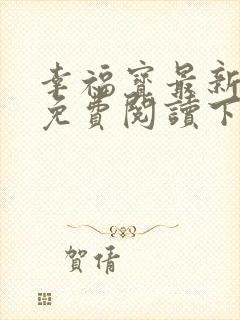 幸福寶最新
免費閱讀下
賀倩